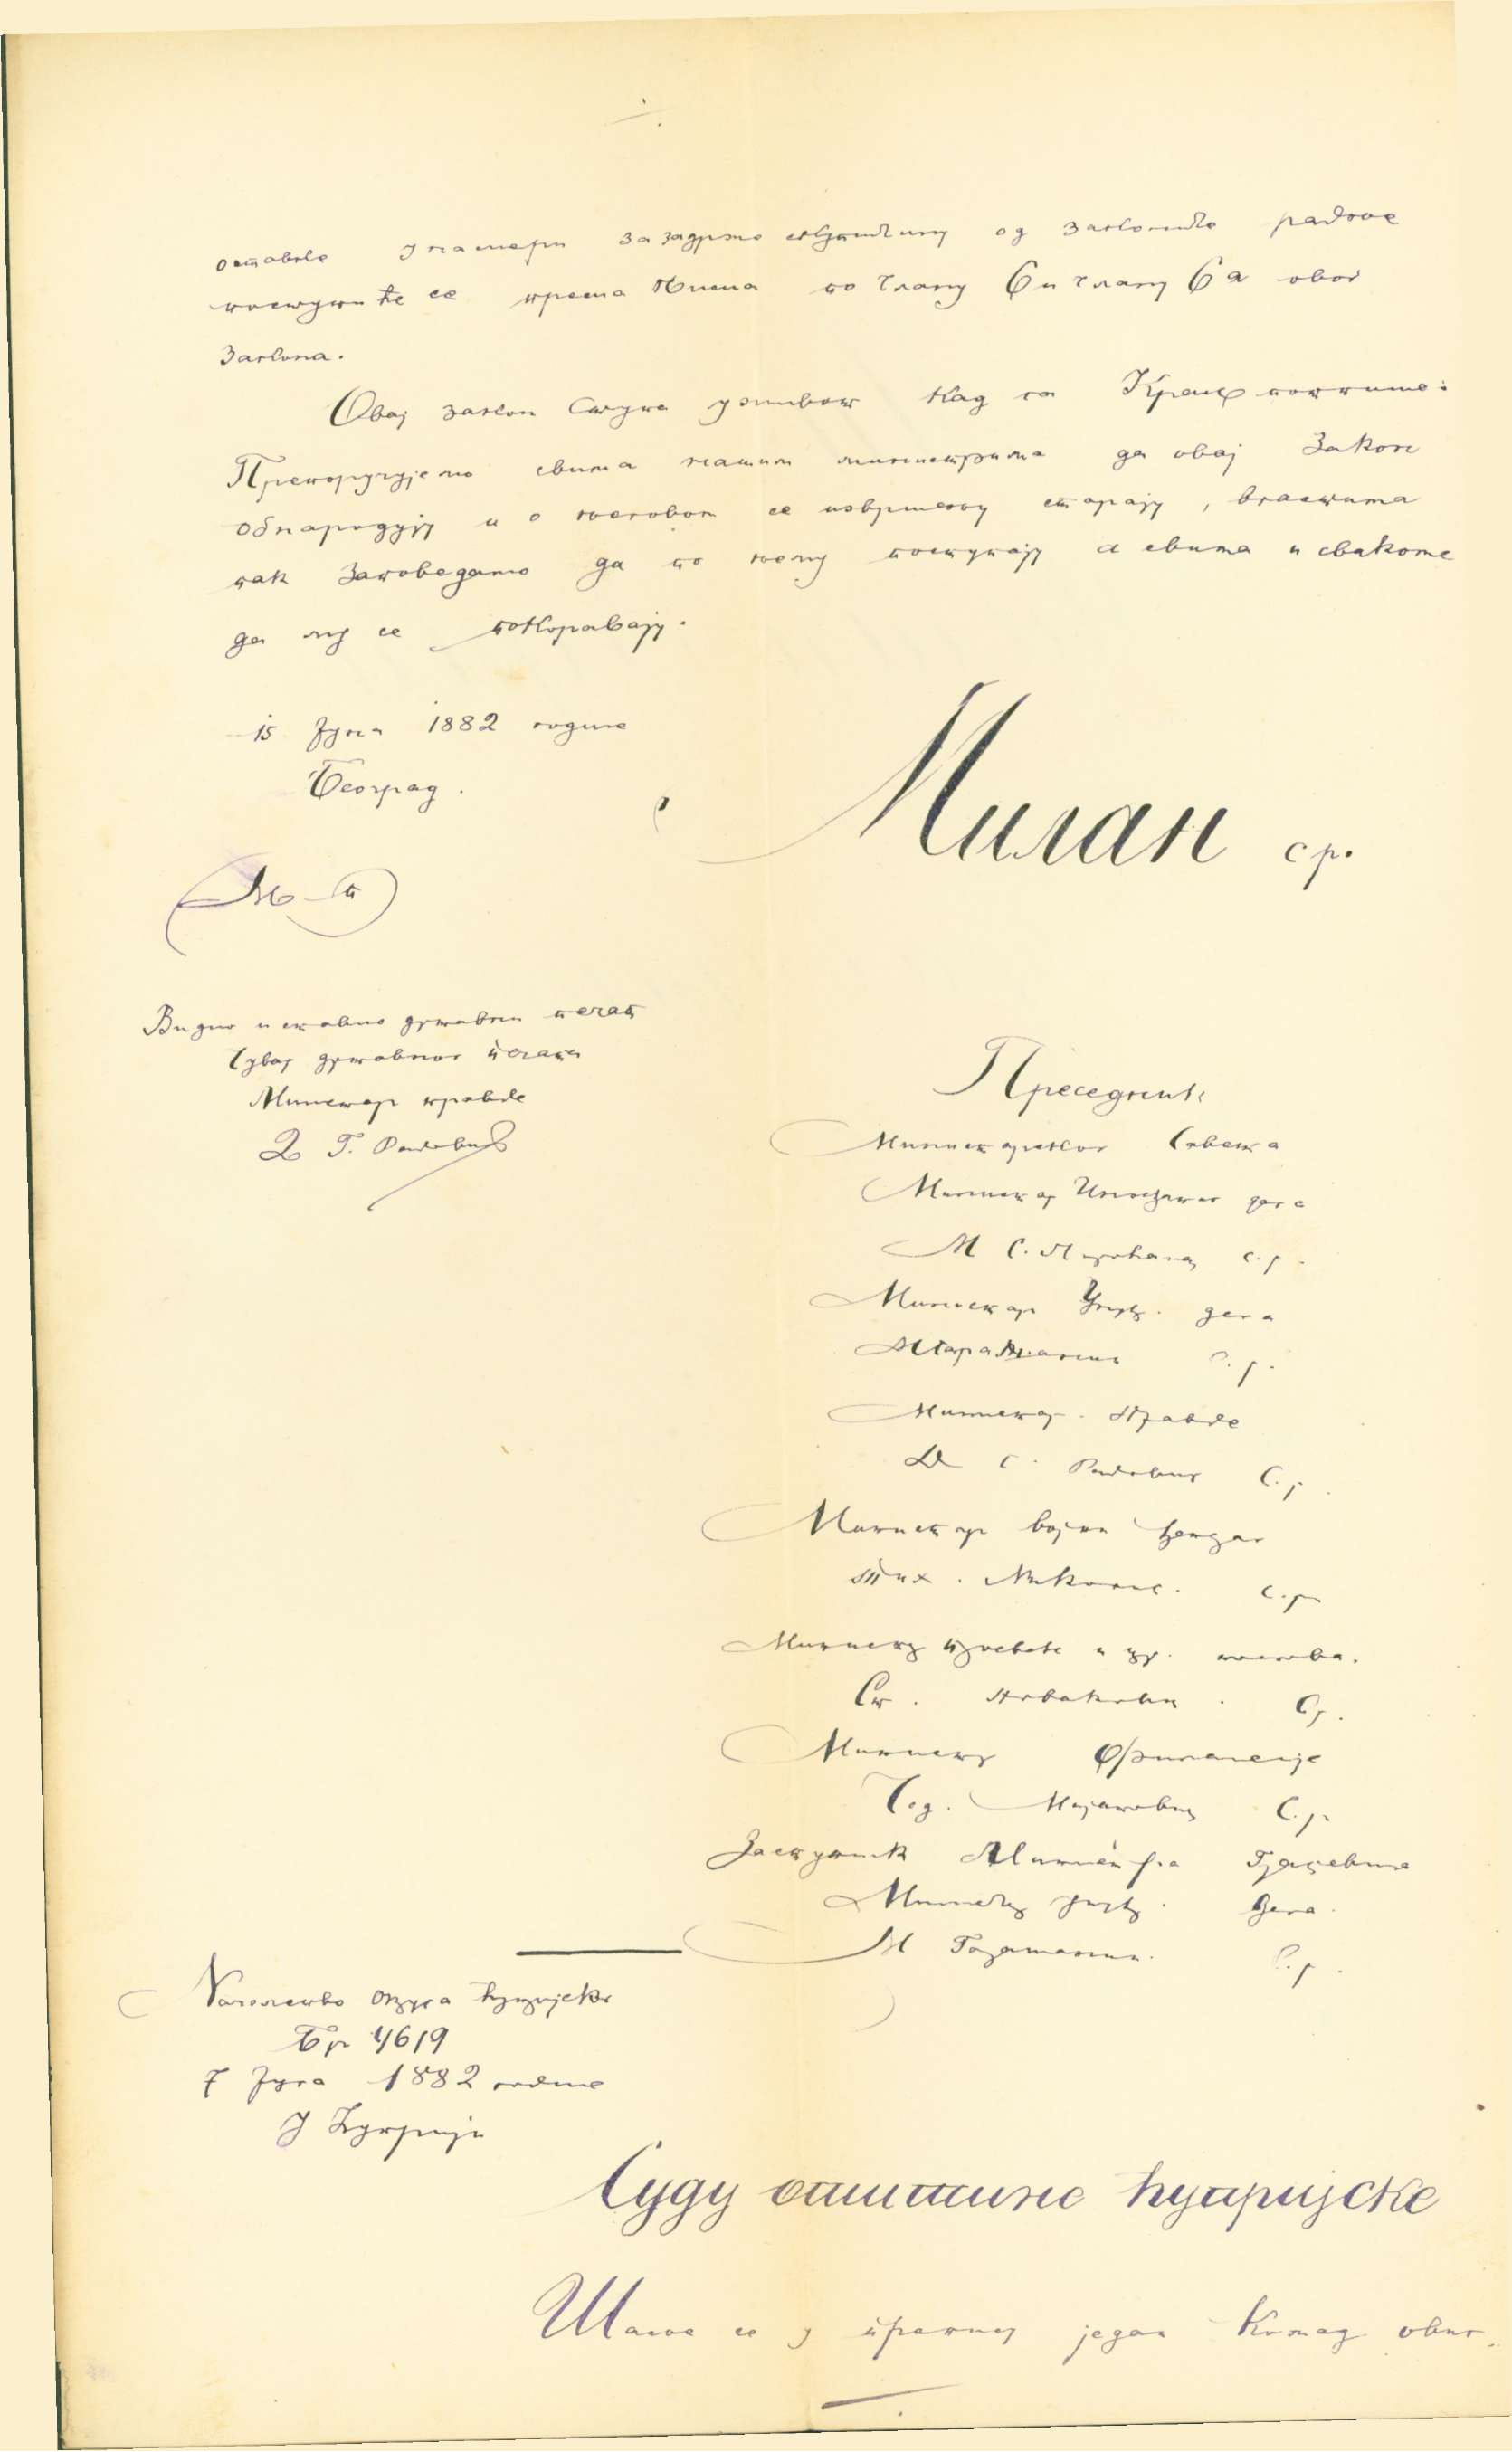 оставке у намери за задржо од законске радове
поступиће се према њима по члану 6 и члану 6а овог
Закона.
Овај закон ступа у живот кад га Краљ потпише:
Препоручујемо свима нашим министрима да овај Закон
обнародују и о његовом се извршењу старају, властима
пак заповедамо да по њему поступају а свима и свакоме
да му се покоравају.
15 Јуна 1882 године
Београд.
Милан с р.
М П
Видио и ставио државни печат
Чувар државног печата
Министар правде
Д Г. Радовић
Преседник
Министарског Савета
Министар Иностраних дела
М С. Пироћанац с.р.
Министар Унутр. дела
М Гарашанин с.р.
Министар Правде
Д Г. Радовић С.р.
Министар војни Ђенерал
Тих. Николић. с.р
Министар просвете и цр. послова.
Ст. Новаковић. С.р.
Министар Финансије
Чед. Мијатовић С.р.
Заступник Министра Грађевина
Министар Унутр. дела.
М Гарашанин. С.р.
Началство округа ћупријског
Бр 4619
7 Јула 1882 године
У Ћуприји
Суду општине ћупријске
Шаље се у прегиб један комад овог